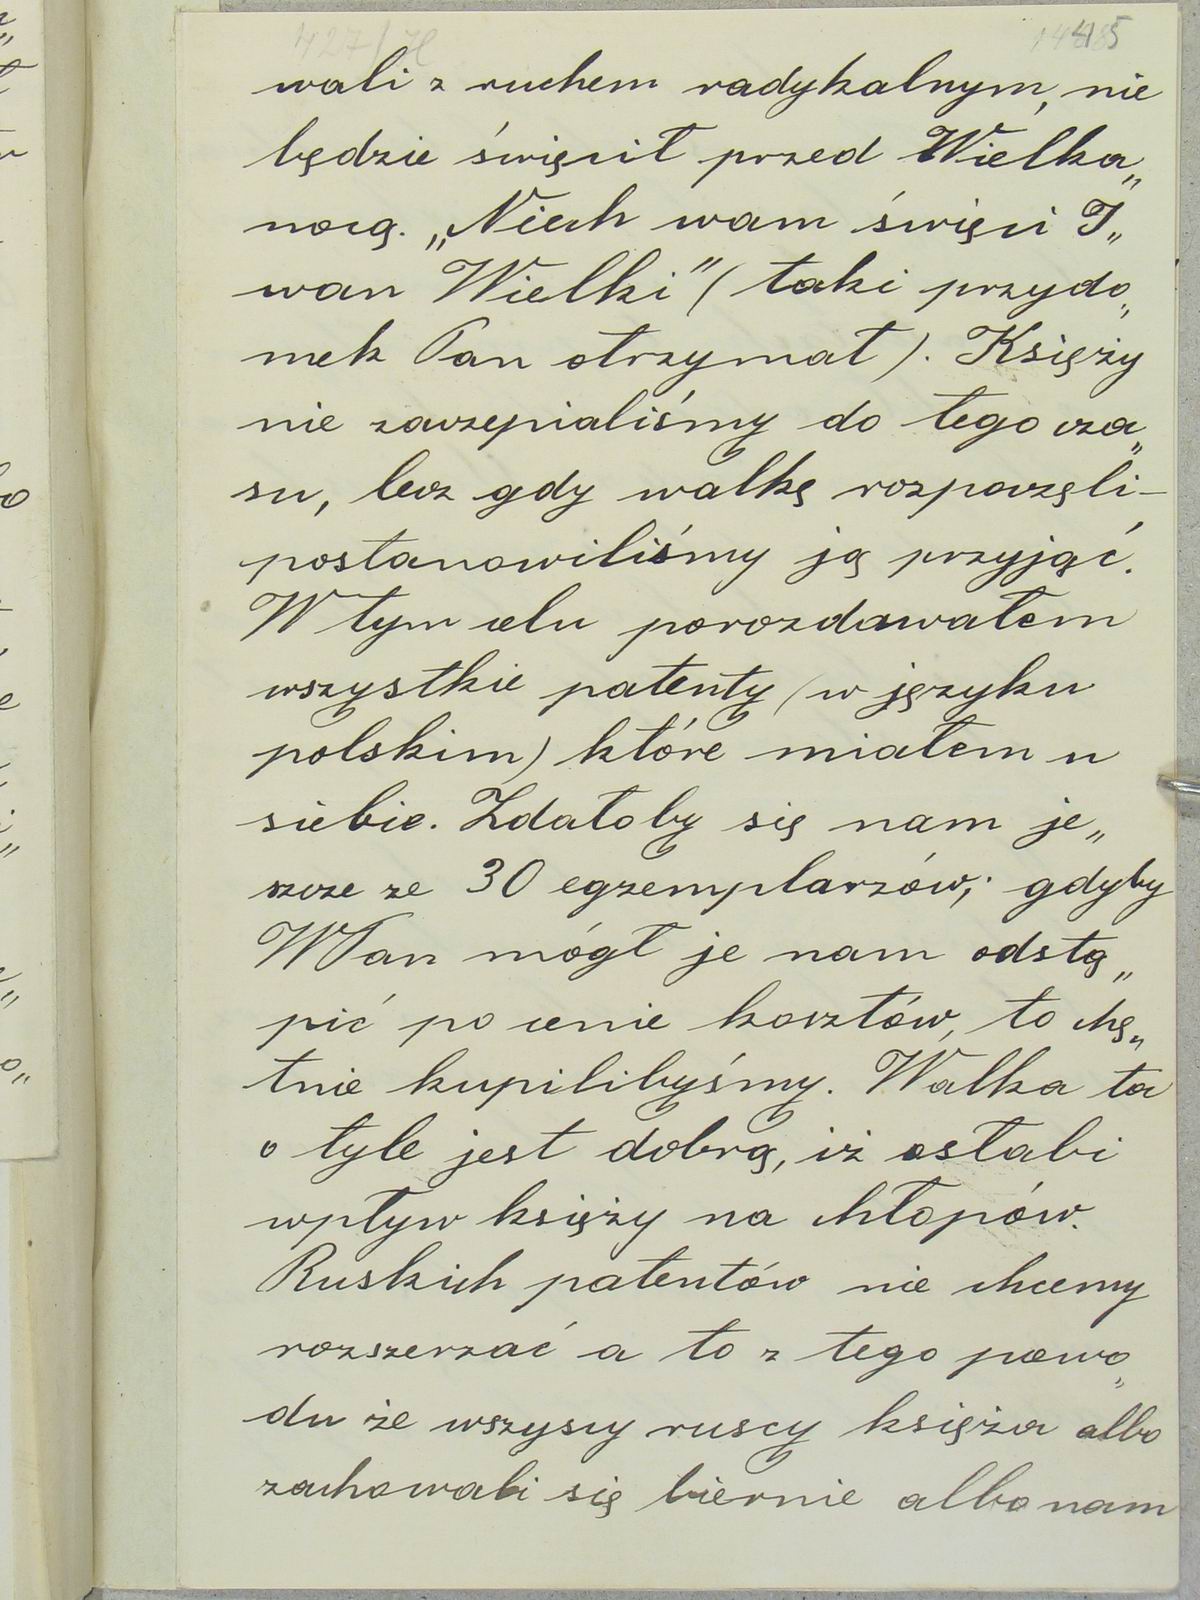 wali z ruchem radykalnym, nie
będzie święcił przed Wielka„
nocą. „Niech wam święci I„
wan Wielki" (taki przydo„
mek Pan otrzymał). Księży
nie zaczepialiśmy do tego cza„
su, lecz gdy walkę rozpoczęli –
postanowiliśmy ją przyjąć.
W tym celu porozdawałem
wszystkie patenty (w języku
polskim) które miałem u
siebie. Zdałoby się nam je„
szcze ze 30 egzemplarzów; gdyby
WPan mógł je nam odstą„
pić po cenie kosztów, to chę„
tnie kupilibyśmy. Walka ta
o tyle jest dobrą, iż osłabi
wpływ księży na chłopów.
Ruskich patentów nie chcemy
rozszerzać a to z tego powo„
du że wszyscy ruscy księża albo
zachowali się biernie albo nam